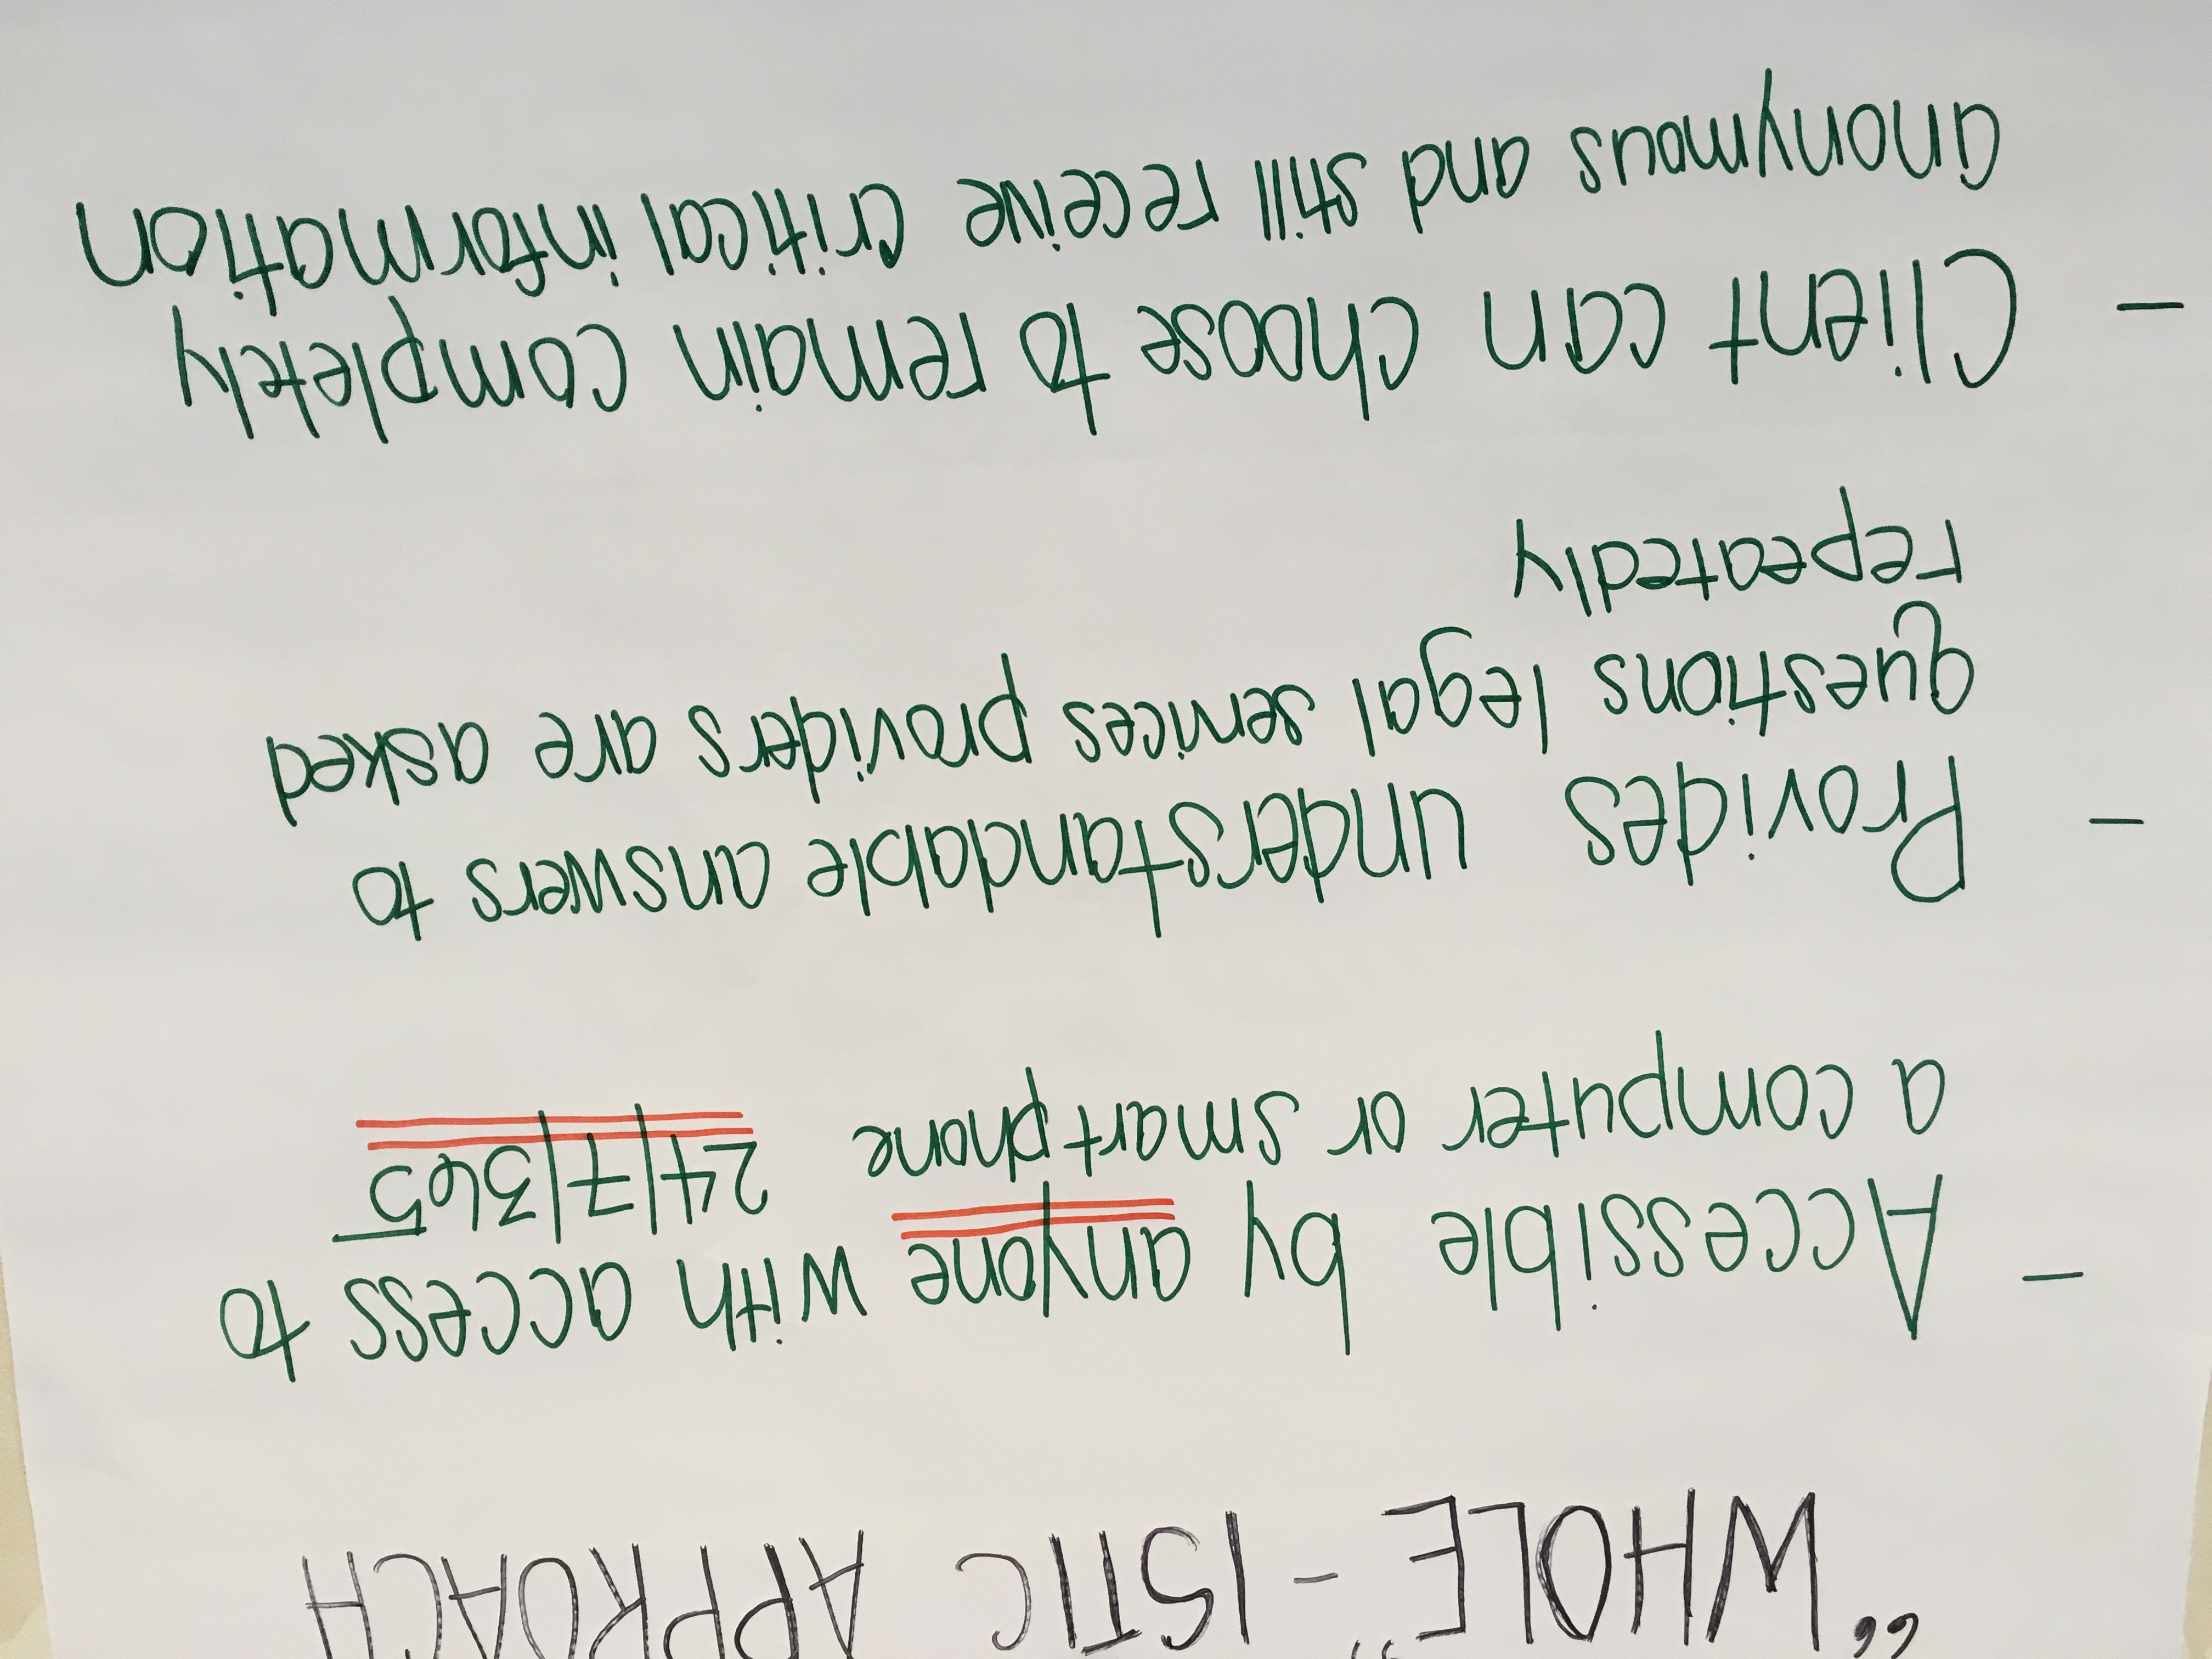 "WHOLE"-ISTIC APPROACH
- Accessible by anyone with access to
a computer or smart phone 24|7|365
- Provides understandable answers to
questions legal services providers are asked
repeatedly
- Client can choose to remain completely
anonymous and still receive critical information